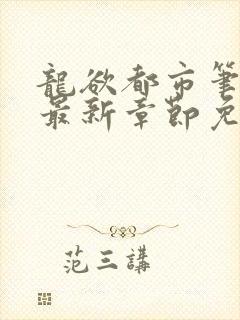 龍欲都市筆
最新章節免
范三講